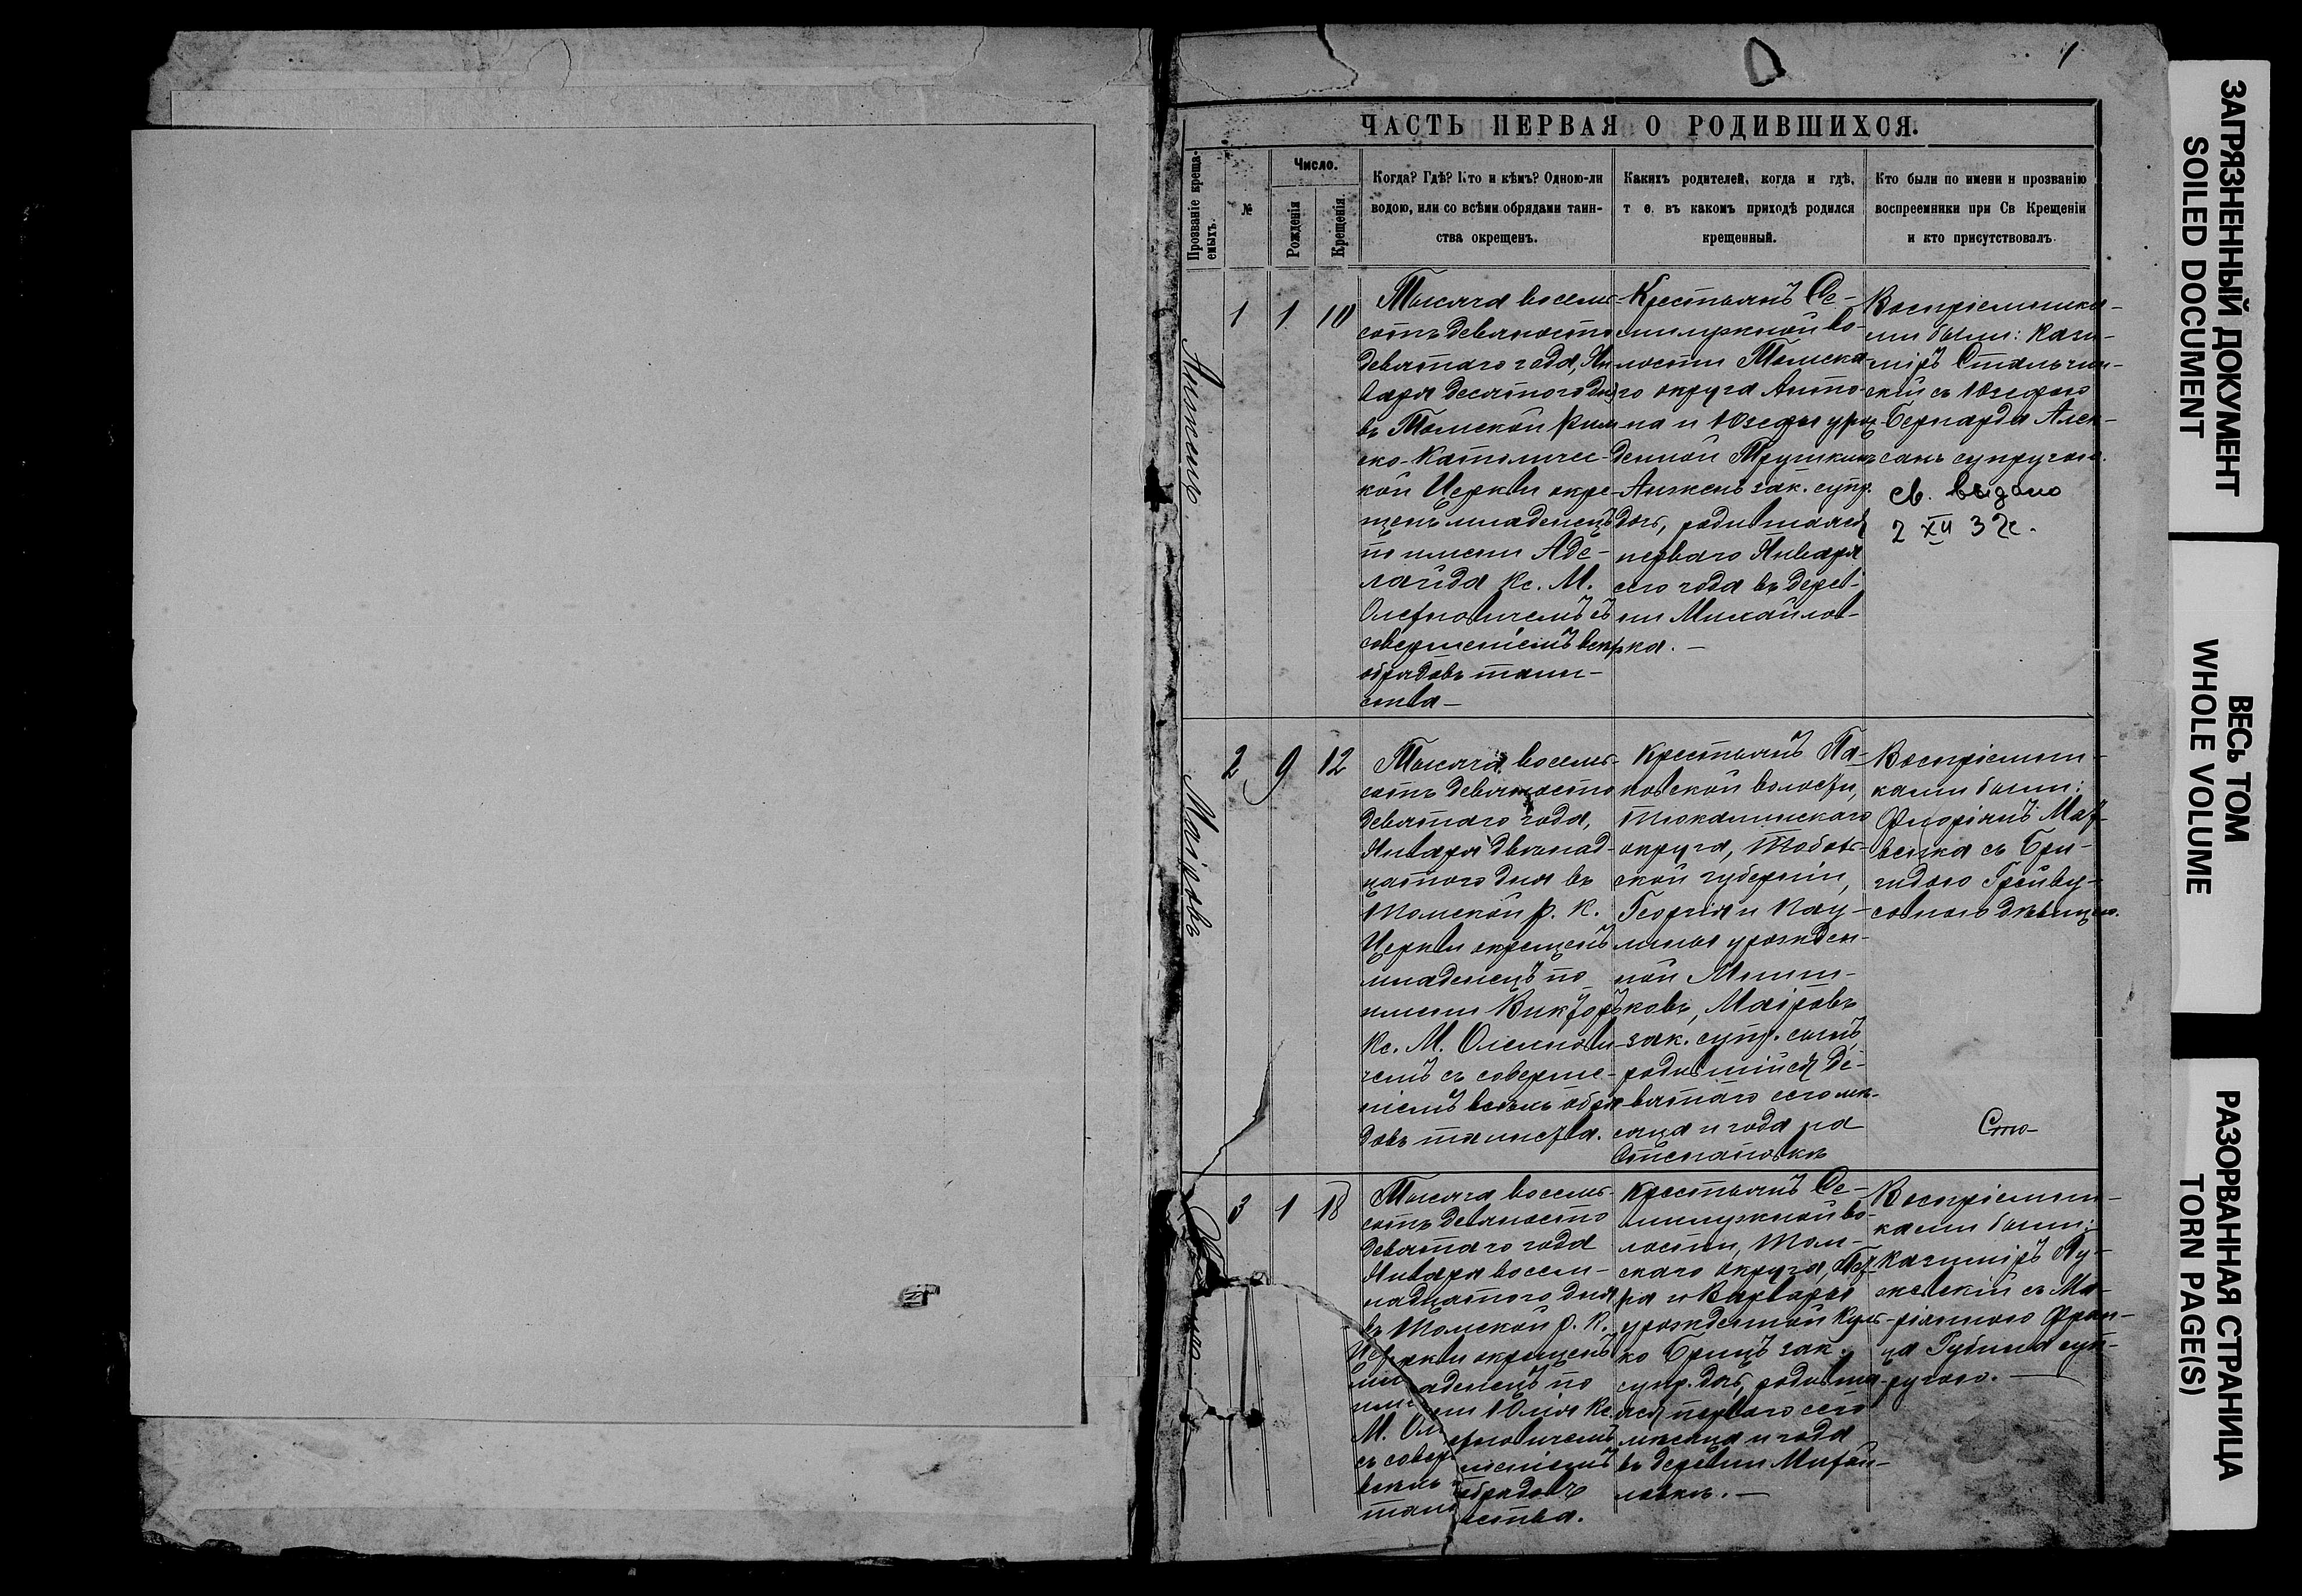 1
ЧАСТЬ ПЕРВАЯ О РОДИВШИХСЯ.
Прозваніе креща-
емыхъ.
№
Число.
Рожденія
Крещенія.
Когда? Гдѣ? Кто и кѣмъ? Одною-ли
водою, или со всѣми обрядами таин-
ства окрещенъ.
Какихъ родителей, когда и гдѣ,
т е. въ какомъ приходѣ родился
крещенный.
Кто были по имени и прозванію
воспреемники при Св Крещеніи
и кто присутствовалъ.
1
1
10
Тысяча восемь-
сотъ девяносто
девятаго года, Ян
варя десятого дня
въ Томской Рим
ско-Католичес-
кой Церкви окре-
щенъ младенецъ
по имени Аде-
лайда Кс. М.
съ
совершеніемъ всѣхъ
обрядовъ таин-
ства —
Крестьянъ Се-
милужной во-
лости Томска-
го округа Анто-
на и Юзефы урож-
денной
зак. супр.
дочь, родившаяся
перваго Января
сего года въ дерев-
ни Михайлов-
ка. —
Воспріемника-
ми были: Кази-
міръ
скій съ Юзефою
Бернарда
супругою.
св. выдано
2 XII
2
9
12
Маіровъ
Тысяча восемь-
сотъ девяносто
девятаго года,
Января двѣнад-
цатого дня въ
Томской р. к.
Церкви окрещенъ
младенецъ по
имени Викторъ
Кс. М.
чемъ съ соверше-
ніемъ всѣхъ обря
довъ таинства.
Крестьянъ Па-
новской волости,
Тюкалинскаго
округа, Тоболь-
ской губерніи,
Георгія и Пау-
лины урожден-
ной
ковъ, Маіровъ
зак. супр. сынъ,
родившійся де-
вятаго сего мѣ-
сяца и года на
Степановкѣ
Воспріемни-
ками были:
Флоріанъ Мат-
вейка съ Бри-
гидою
дѣвицею.
3
1
18
Тысяча восемь-
сотъ девяносто
девятаго года
Января восем-
надцатого дня
въ Томской р. к.
Церкви окрещенъ
младенецъ по
имени Юлія Кс.
М.
съ совершеніемъ
всѣхъ обрядовъ
таинства.
Крестьянъ Се-
милужной во-
лости, Том-
скаго округа, Пет-
ра и Варвары
урожденной Куль-
ко Брицъ зак.
супр. дочь, родивша-
яся перваго сего
мѣсяца и года
въ деревни Михай-
ловкѣ. —
Воспріемни-
ками были:
Казиміръ
съ Ма-
ріанною Фран-
ца Рубина суп-
ругою. —
ЗАГРЯЗНЕННЫЙ ДОКУМЕНТ
SOILED DOCUMENT
ВЕСЬ ТОМ
WHOLE VOLUME
РАЗОРВАННАЯ СТРАНИЦА
TORN PAGE(S)